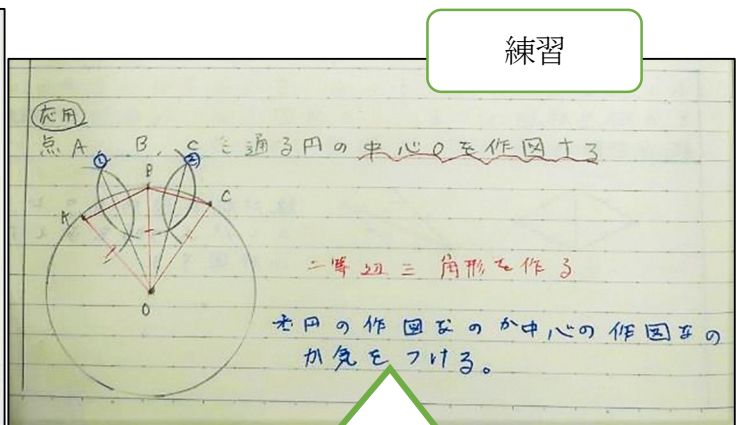 練習
応用
点A、B、Cを通る円の中心Oを作図する
① ②
B
A C
O
二等辺三角形を作る
円の作図なのか中心の作図なの
か気をつける。